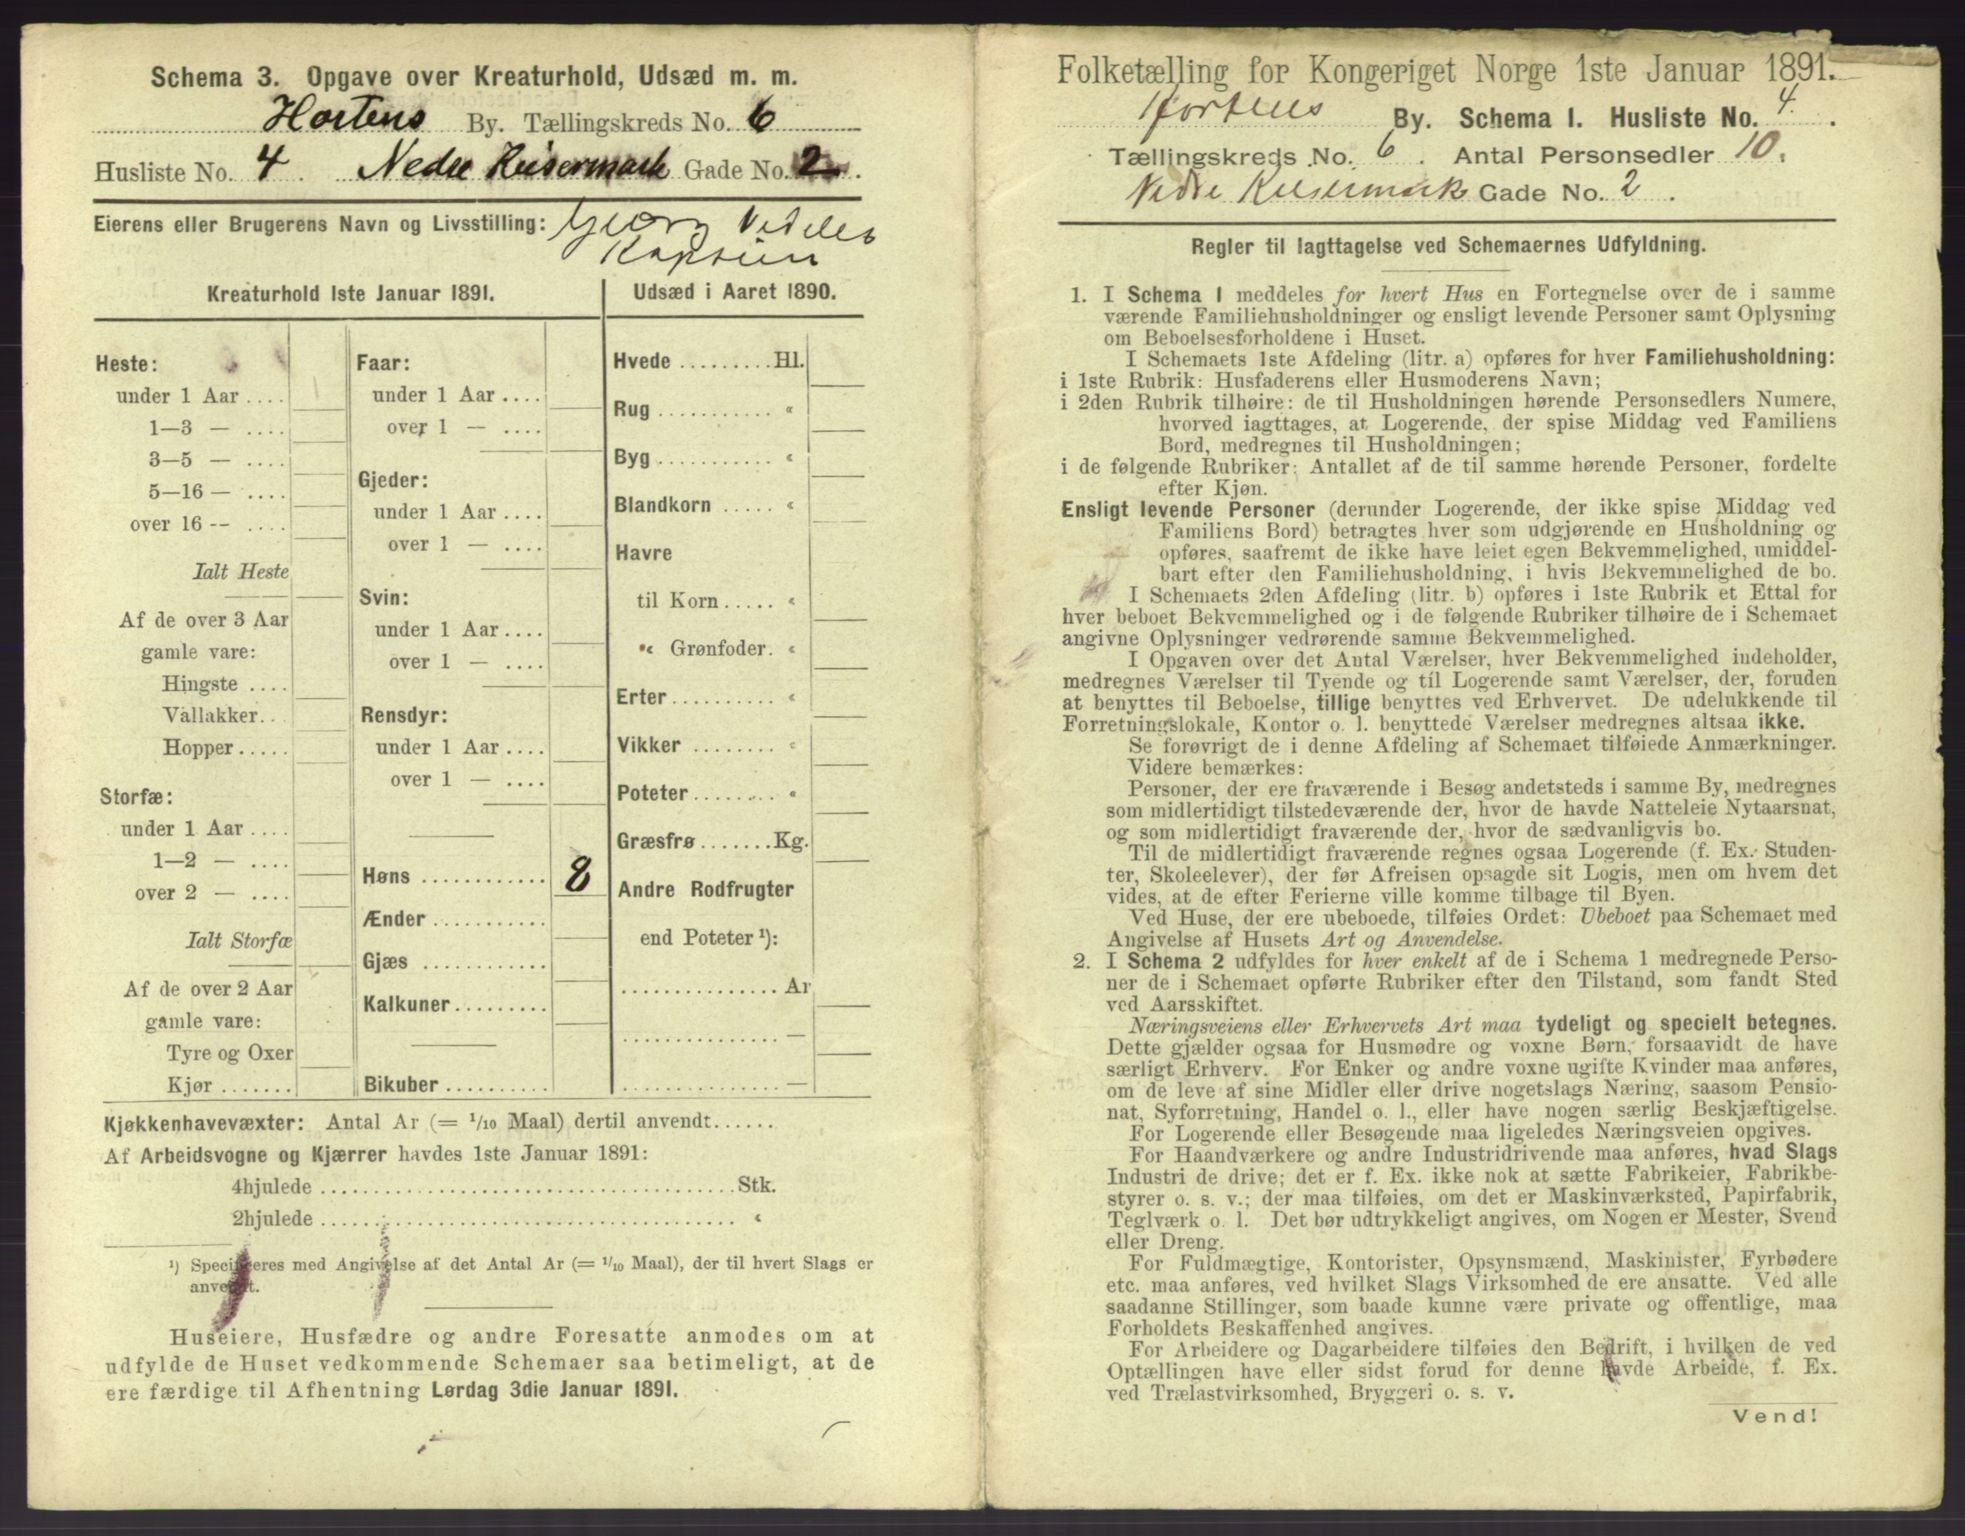 Schema 3. Opgave over Kreaturhold, Udsæd m. m.
Hortens By. Tællingskreds No. 6
Husliste No. 4. Nedre Keisermark Gade No. 2.
Eierens eller Brugerens Navn og Livsstilling: Georg
Kaptein
Kreaturhold 1ste Januar 1891.
Heste:
under 1 Aar ....
1—3 — ....
3—5 — ....
5—16 — ....
over 16 -- ....
Ialt Heste
Af de over 3 Aar
gamle vare:
Hingste ....
Vallakker...
Hopper.....
Storfæ:
under 1 Aar ....
1—2 — ....
over 2 — ....
Ialt Storfæ
Af de over 2 Aar
gamle vare:
Tyre og Oxer
Kjør.......
Faar:
under 1 Aar ....
over 1 — ....
Gjeder:
under 1 Aar ....
over 1 — ....
Svin:
under 1 Aar ....
over 1 — ....
Rensdyr:
under 1 Aar ....
over 1 — ....
Høns ............ 8
Ænder ...........
Gjæs ............
Kalkuner.........
Bikuber ..........
Udsæd i Aaret 1890.
Hvede .........Hl.
Rug ........... «
Byg ........... «
Blandkorn ..... «
Havre
til Korn..... «
« Grønfoder. «
Erter .......... «
Vikker ........ «
Poteter........ «
Græsfrø.......Kg.
Andre Rodfrugter
end Poteter ¹):
...............Ar
............... —
............... —
Kjøkkenhavevæxter: Antal Ar (= 1/10 Maal) dertil anvendt......
Af Arbeidsvogne og Kjærrer havdes 1ste Januar 1891:
4hjulede ......................................Stk.
2hjulede ...................................... «
¹) Specificeres med Angivelse af det Antal Ar (= 1/10 Maal), der til hvert Slags er
anvendt.
Huseiere, Husfædre og andre Foresatte anmodes om at
udfylde de Huset vedkommende Schemaer saa betimeligt, at de
ere færdige til Afhentning Lørdag 3die Januar 1891.
Folketælling for Kongeriget Norge 1ste Januar 1891.
Hortens By. Schema 1. Husliste No. 4.
Tællingskreds No. 6. Antal Personsedler 10.
Nedre Keisermark Gade No. 2.
Regler til Iagttagelse ved Schemaernes Udfyldning.
1. I Schema 1 meddeles for hvert Hus en Fortegnelse over de i samme
værende Familiehusholdninger og ensligt levende Personer samt Oplysning
om Beboelsesforholdene i Huset.
I Schemaets 1ste Afdeling (litr. a) opføres for hver Familiehusholdning:
i 1ste Rubrik: Husfaderens eller Husmoderens Navn;
i 2den Rubrik tilhøire: de til Husholdningen hørende Personsedlers Numere,
hvorved iagttages, at Logerende, der spise Middag ved Familiens
Bord, medregnes til Husholdningen;
i de følgende Rubriker: Antallet af de til samme hørende Personer, fordelte
efter Kjøn.
Ensligt levende Personer (derunder Logerende, der ikke spise Middag ved
Familiens Bord) betragtes hver som udgjørende en Husholdning og
opføres, saafremt de ikke have leiet egen Bekvemmelighed, umiddel-
bart efter den Familiehusholdning, i hvis Bekvemmelighed de bo.
I Schemaets 2den Afdeling (litr. b) opføres i 1ste Rubrik et Ettal for
hver beboet Bekvemmelighed og i de følgende Rubriker tilhøire de i Schemaet
angivne Oplysninger vedrørende samme Bekvemmelighed.
I Opgaven over det Antal Værelser, hver Bekvemmelighed indeholder,
medregnes Værelser til Tyende og til Logerende samt Værelser, der, foruden
at benyttes til Beboelse, tillige benyttes ved Erhvervet. De udelukkende til
Forretningslokale, Kontor o. l. benyttede Værelser medregnes altsaa ikke.
Se forøvrigt de i denne Afdeling af Schemaet tilføiede Anmærkninger.
Videre bemærkes:
Personer, der ere fraværende i Besøg andetsteds i samme By, medregnes
som midlertidigt tilstedeværende der, hvor de havde Natteleie Nytaarsnat,
og som midlertidigt fraværende der, hvor de sædvanligvis bo.
Til de midlertidigt fraværende regnes ogsaa Logerende (f. Ex. Studen-
ter, Skoleelever), der før Afreisen opsagde sit Logis, men om hvem det
vides, at de efter Ferierne ville komme tilbage til Byen.
Ved Huse, der ere ubeboede, tilføies Ordet: Ubeboet paa Schemaet med
Angivelse af Husets Art og Anvendelse.
2. I Schema 2 udfyldes for hver enkelt af de i Schema 1 medregnede Perso-
ner de i Schemaet opførte Rubriker efter den Tilstand, som fandt Sted
ved Aarsskiftet.
Næringsveiens eller Erhvervets Art maa tydeligt og specielt betegnes.
Dette gjælder ogsaa for Husmødre og voxne Børn, forsaavidt de have
særligt Erhverv. For Enker og andre voxne ugifte Kvinder maa anføres,
om de leve af sine Midler eller drive nogetslags Næring, saasom Pensio-
nat, Syforretning, Handel o. l., eller have nogen særlig Beskjæftigelse.
For Logerende eller Besøgende maa ligeledes Næringsveien opgives.
For Haandværkere og andre Industridrivende maa anføres, hvad Slags
Industri de drive; det er f. Ex. ikke nok at sætte Fabrikeier, Fabrikbe-
styrer o. s. v.; der maa tilføies, om det er Maskinværksted, Papirfabrik,
Teglværk o. l. Det bør udtrykkeligt angives, om Nogen er Mester, Svend
eller Dreng.
For Fuldmægtige, Kontorister, Opsynsmænd, Maskinister, Fyrbødere
etc. maa anføres, ved hvilket Slags Virksomhed de ere ansatte. Ved alle
saadanne Stillinger, som baade kunne være private og offentlige, maa
Forholdets Beskaffenhed angives.
For Arbeidere og Dagarbeidere tilføies den Bedrift, i hvilken de ved
Optællingen have eller sidst forud for denne havde Arbeide, f. Ex.
ved Trælastvirksomhed, Bryggeri o. s. v.
Vend!